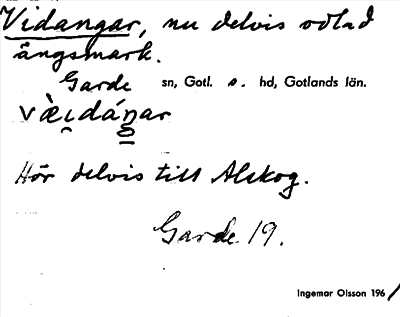 Vidangar, nu delvis odlad
ängsmark.
Garde sn, Gotl. s. hd, Gotlands län.
Hör delvis till Alskog.
Garde 19.
Ingemar Olsson 1961